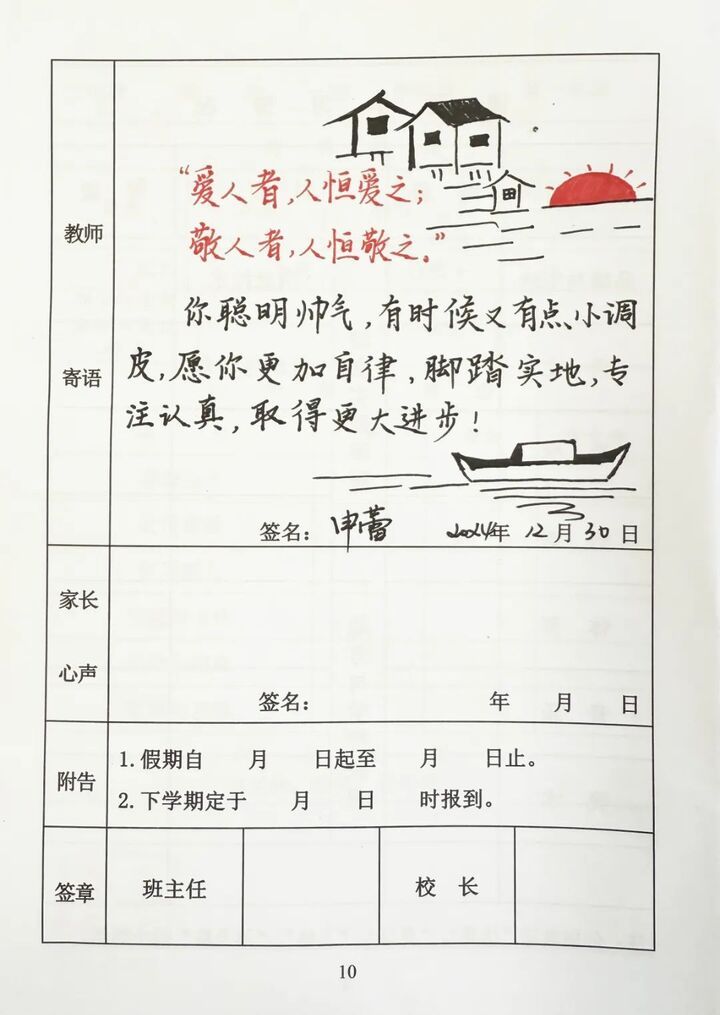 教师
寄语
“爱人者,人恒爱之;
敬人者,人恒敬之。”
你聪明帅气,有时候又有点小调
皮,愿你更加自律,脚踏实地,专
注认真,取得更大进步!
签名: 申蕾 2024年 12月 30日
家长
心声
签名: 年 月 日
附告
1.假期自 月 日起至 月 日止。
2.下学期定于 月 日 时报到。
签章 班主任 校 长
10